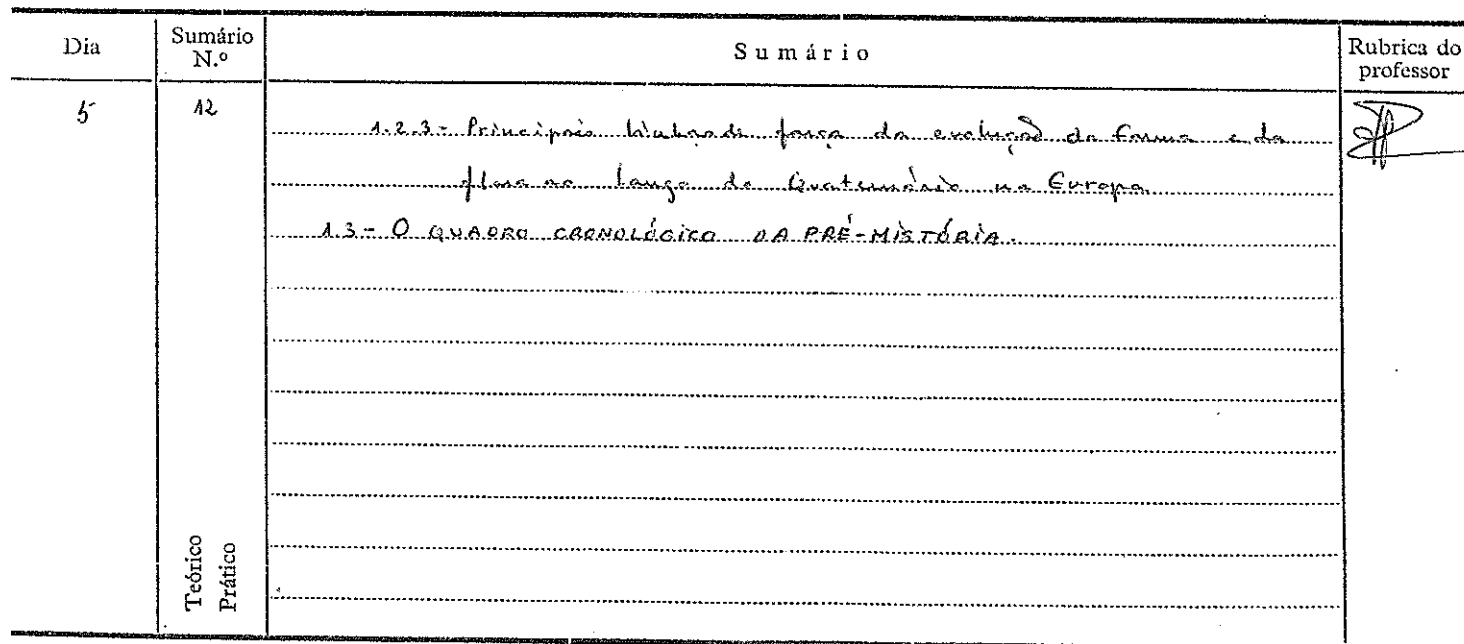 Dia
Sumário
N.º
Sumário
Rubrica do
professor
5
12
1.2.3 - Principais linhas de força da evolução da fauna e da
flora ao longo do Quaternário na Europa
1.3 - O QUADRO CRONOLÓGICO DA PRÉ-HISTÓRIA.
Teórico
Prático